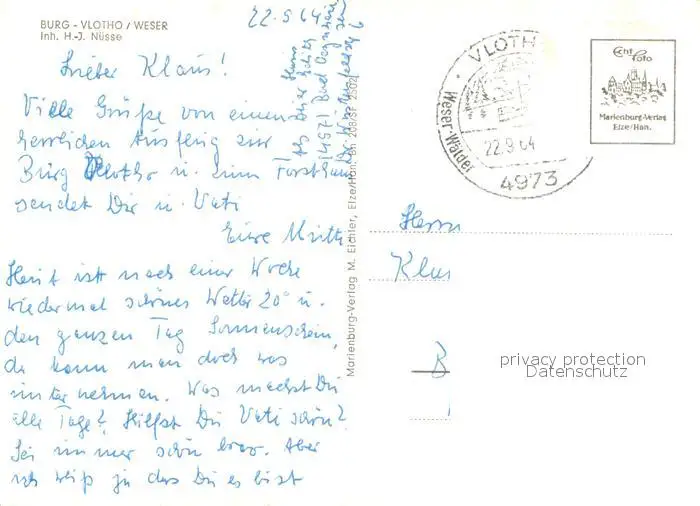 BURG - VLOTHO / WESER
Inh. H.-J. Nüsse
22.9.64
Lieber Klaus!
Viele Grüße von einem
herrlichen Ausflug zur
Burg Vlotho u. zum Forsthaus
sendet Dir u. Vati
Eure Mutti
Heut ist nach einer Woche
wiedermal schönes Wetter 20° u.
den ganzen Tag Sonnenschein,
da kann man doch was
unternehmen. Was machst Du
alle Tage? Hilfst Du Vati schön?
Sei immer schön brav. Aber
ich weiß ja das Du es bist
4971 Bad
Marienburg-Verlag M. Eichler, Elze/Han.
VLOTH
Weser-Wälder
22.9.64
4973
Echt Foto
Marienburg-Verlag
Elze/Han.
Herrn
Klaus
B
privacy protection
Datenschutz